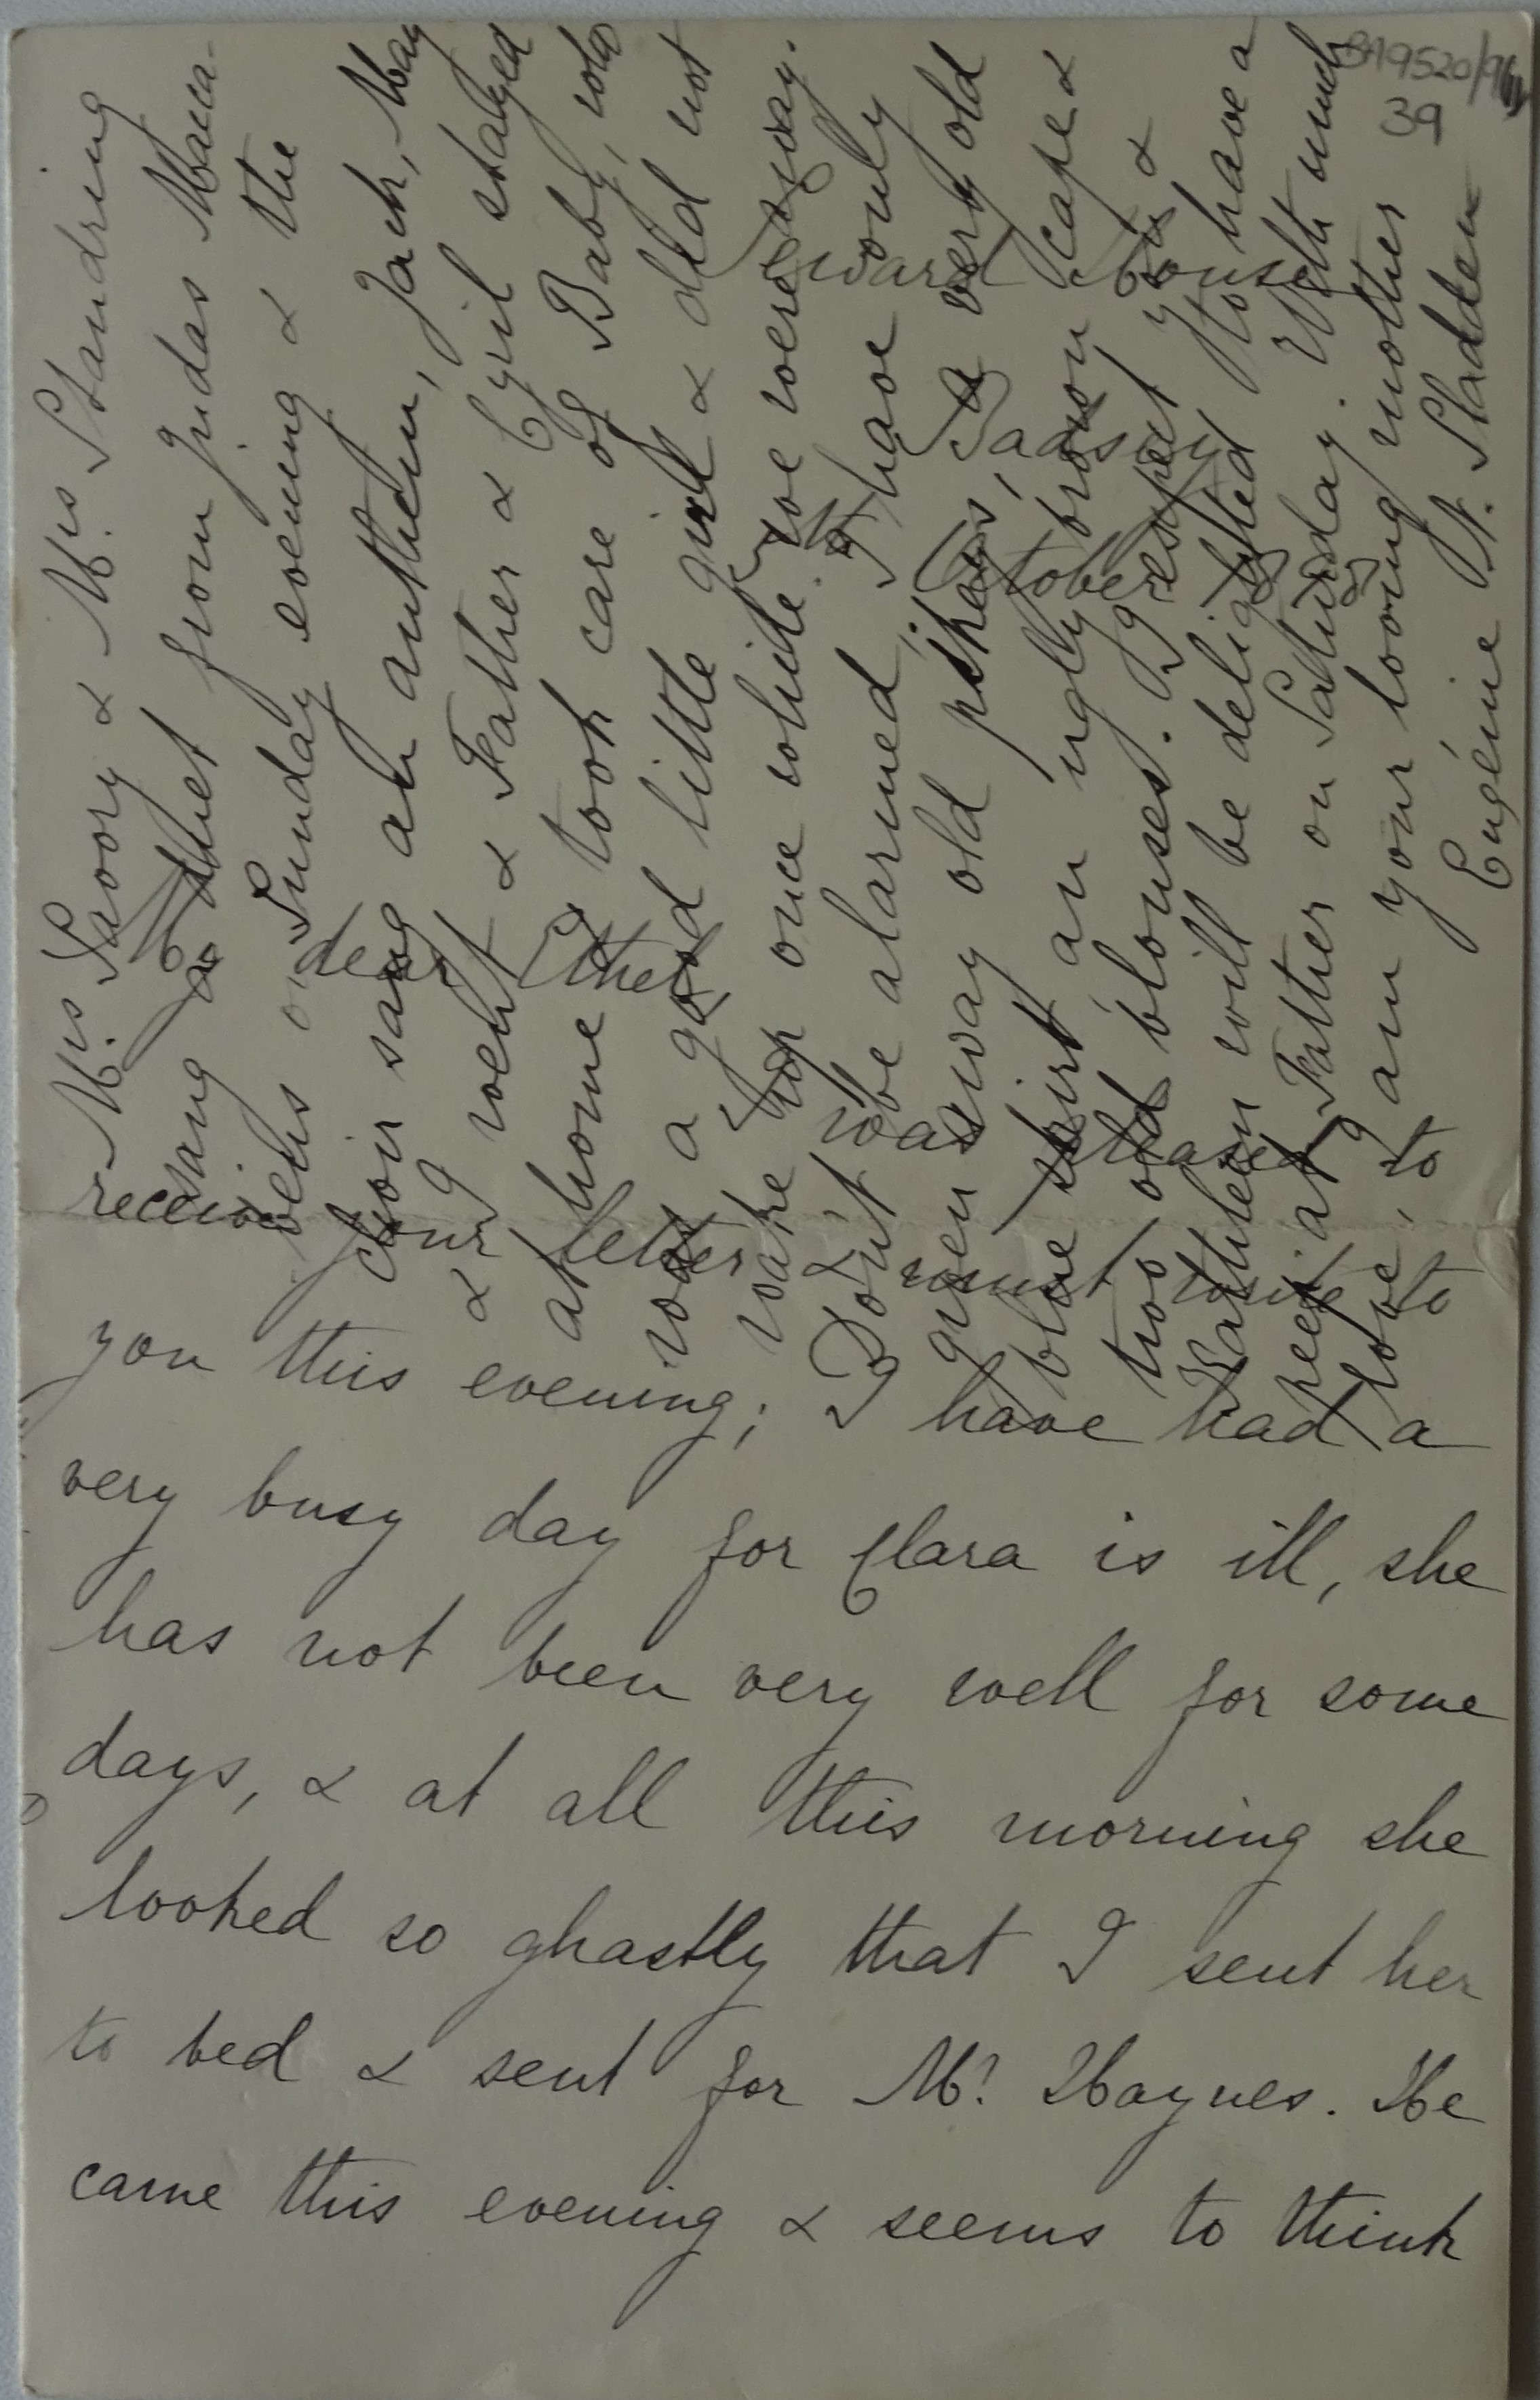 B19520/9
39
Seward House
Badsey
October
My dear Ethel,
I was pleased to
receive your letter & must write to
you this evening; I have had a
very busy day for Clara is ill, she
has not been very well for some
days, & at all this morning she
looked so ghastly that I sent her
to bed & sent for Mr. Haynes. He
came this evening & seems to think
Mrs. Savory & Mrs. Standring
sang a duet from Judas Macca-
boeus on Sunday evening & the
choir sang an anthem, Jack, May
& I went & Father & Cyril stayed
at home & took care of Baby, who
was a good little girl & did not
wake up once while we were away.
Don't be alarmed, I have only
given away old things, a very old
blue skirt, an ugly brown cape &
two old blouses. I expect you &
Kathleen will be delighted to have a
peep at Father on Saturday. With much
love, I am your loving mother
Eugénie N. Sladden